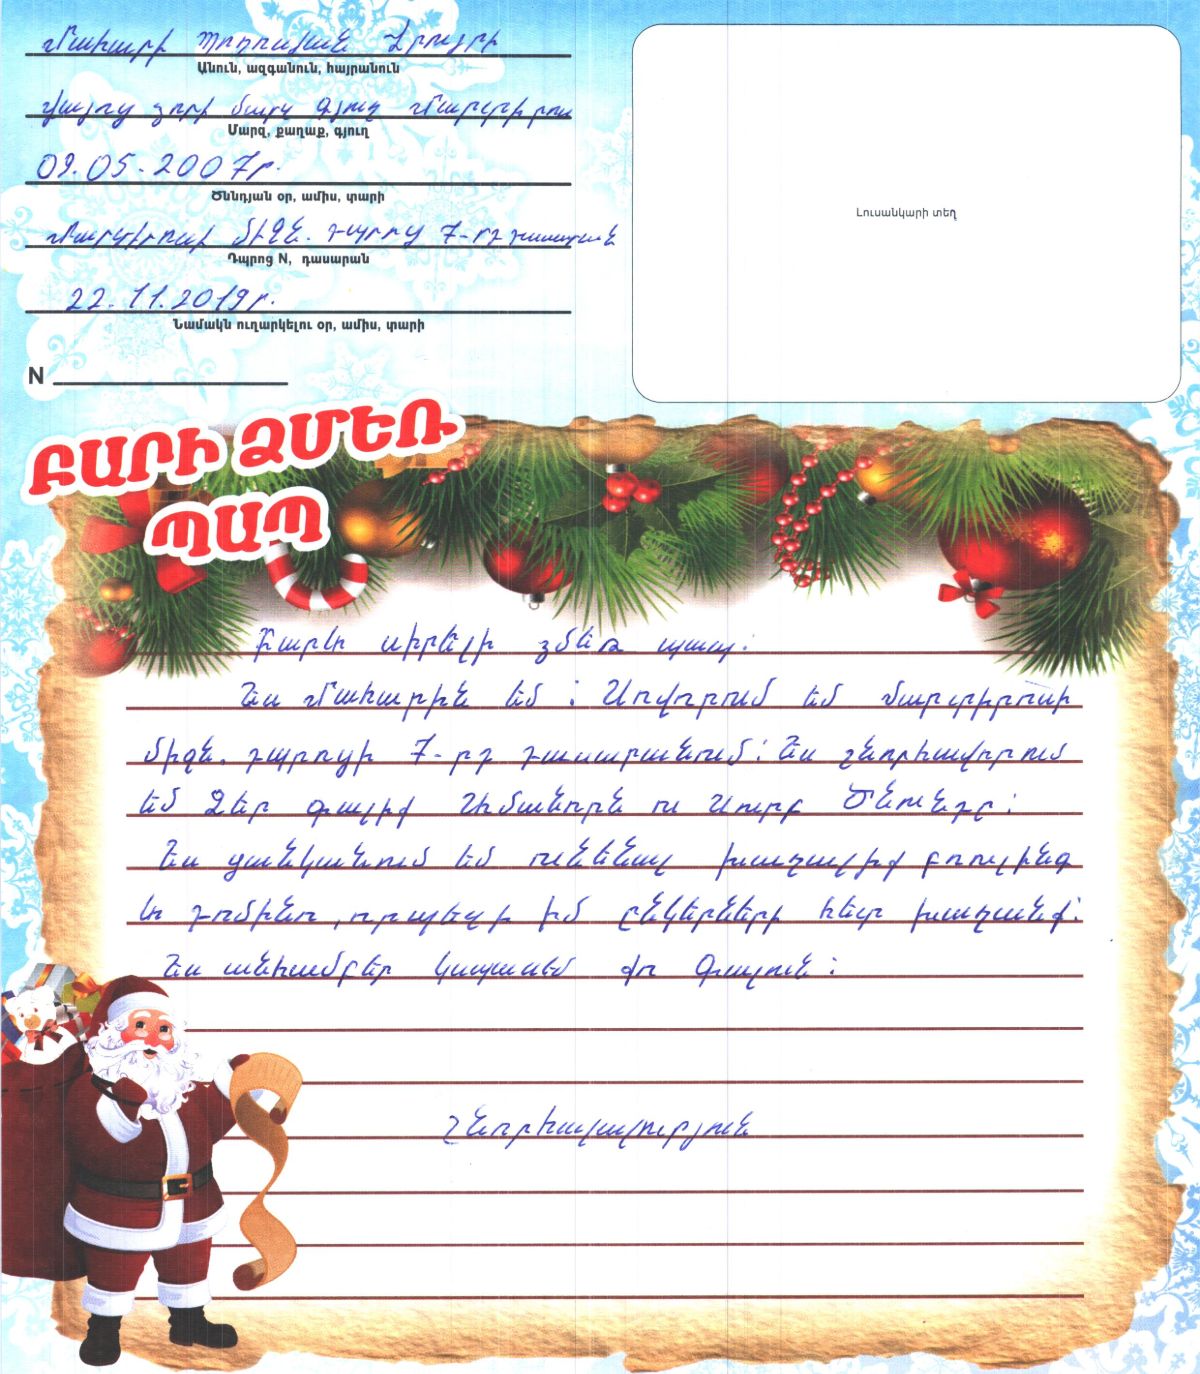 Մախարի Պողոսյան Հրայրի
Անուն, ազգանուն, հայրանուն
Վայոց ձորի մարզ գյուղ Մարտիրոս
Մարզ, քաղաք, գյուղ
09.05.2007թ.
Ծննդյան օր, ամիս, տարի
Մարտիրոսի միջն. դպրոց 7-րդ դասարան
Դպրոց N, դասարան
22.11.2019թ.
Նամակն ուղարկելու օր, ամիս, տարի
N
Լուսանկարի տեղ
ԲԱՐԻ ՁՄԵՌ
ՊԱՊ
Բարև սիրելի ձմեռ պապ:
Ես Մախարին եմ: Սովորում եմ Մարտիրոսի
միջն. դպրոցի 7-րդ դասարանում: Ես շնորհավորում
եմ Ձեր գալիք Ամանորն ու Սուրբ Ծնունդը:
Ես ցանկանում եմ ունենալ խաղալիք բոուլինգ
և դոմինո, որպեսզի իմ ընկերների հետ խաղանք:
Ես անհամբեր կսպասեմ քո գալուն:
Շնորհակալություն